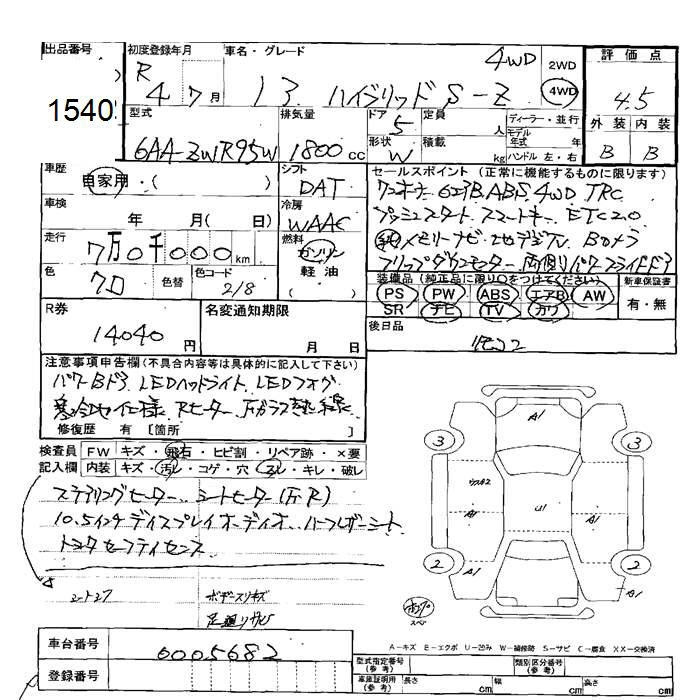 出品番号 初度登録年月 車名・グレード 4WD 2WD 評価点
R 4 7月 13 ハイブリッド S-Z 4WD 4.5
1540
型式 排気量 ドア 5 定員 人 ディーラー・並行
6AA-ZWR95W 1800cc 形状 W 積載 kg モデル年式 年 ハンドル 左・右
外装 内装
B B
車歴 自家用・( ) シフト DAT
セールスポイント (正常に機能するものに限ります)
車検 年 月( 日) 冷房 WAAC
ワンオーナー 6エアB ABS 4WD TRC
プッシュスタート スマートキー ETC2.0
走行 7万0千000km 燃料 ガソリン 軽油 ( )
純メモリーナビ・地デジTV Bカメラ
フリップダウンモニター 両側パワースライドドア
色 クロ 色替 色コード 218
装備品 (純正品に限り○をつけてください) 新車保証書
PS PW ABS エアB AW 有・無
SR ナビ TV カワ
R券 14040円 名変通知期限 月 日
後日品
注意事項申告欄(不具合内容等は具体的に記入して下さい)
パワーBドア LEDヘッドライト LEDフォグ
寒冷地仕様 Rヒーター Fガラス熱線
修復歴 有 [箇所 ]
検査員 FW キズ・飛石・ヒビ割・リペア跡・×要
記入欄 内装 キズ・汚レ・コゲ・穴・スレ・キレ・破レ
ステアリングヒーター シートヒーター(F.R)
10.5インチディスプレイオーディオ ハーフレザーシート
トヨタセーフティセンス
ボデースリキズ
足廻リサビ
A1
3 3
A1 U1 A1
2 2
A1 A1
スペア
A-キズ E-エクボ U-凹み W-補修跡 S-サビ C-腐食 XX-交換済
車台番号 0005682
登録番号
型式指定番号(参考) 類別区分番号(参考)
車庫証明用(参考) 長さ cm 幅 cm 高さ cm